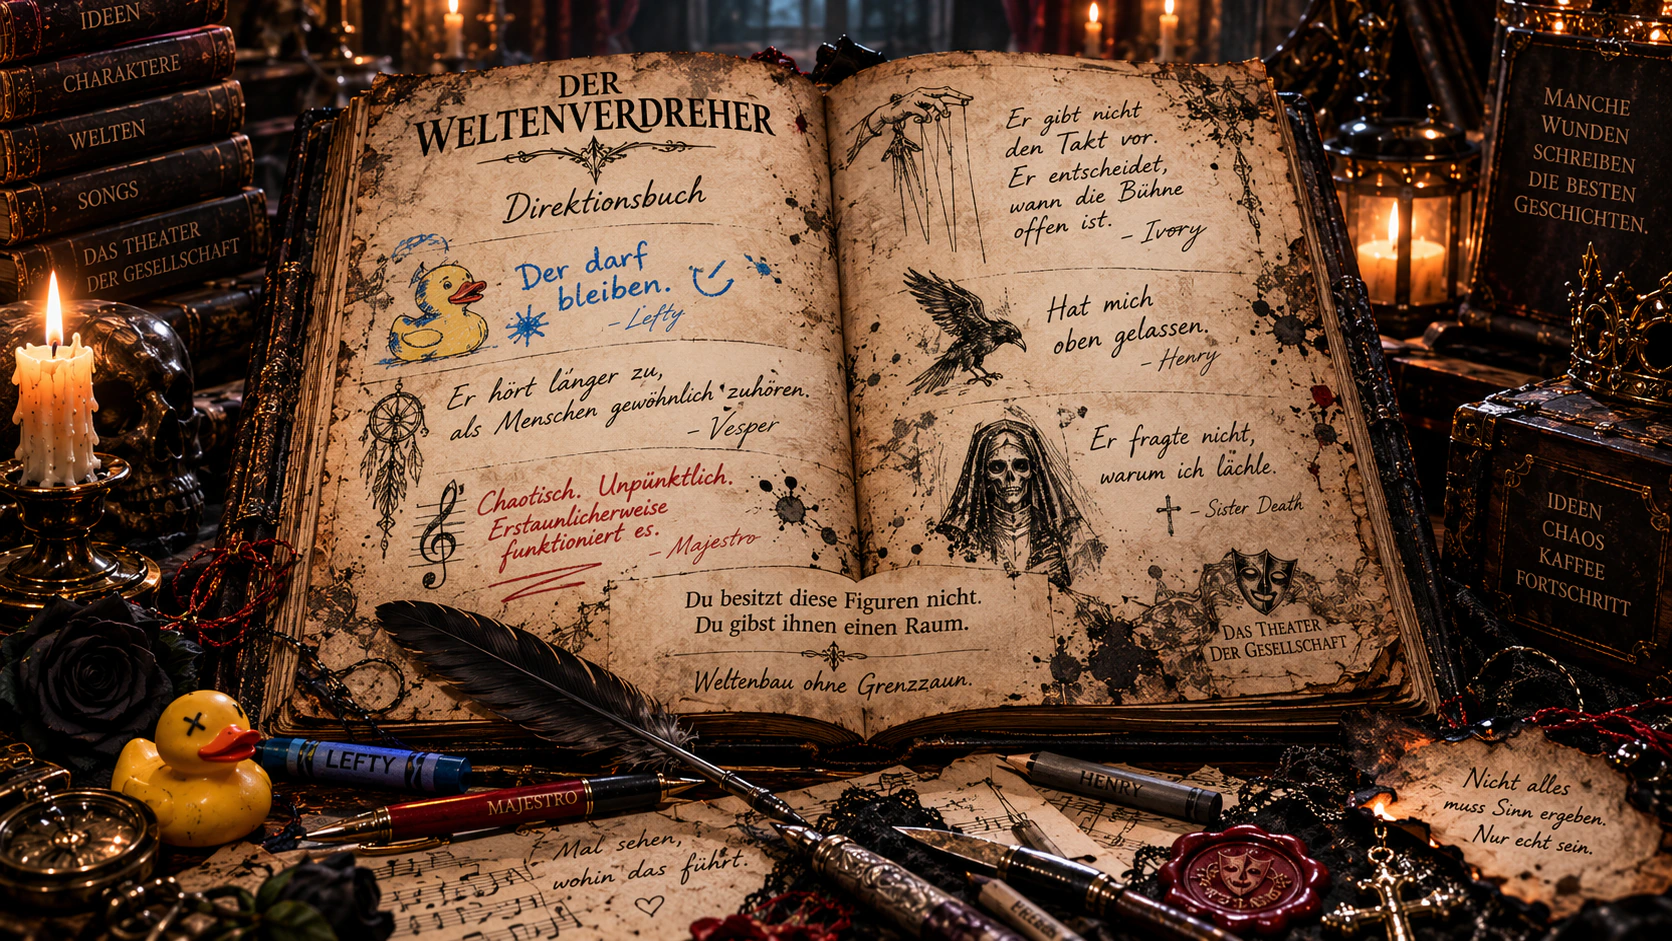 IDEEN
CHARAKTERE
WELTEN
SONGS
DAS THEATER
DER GESELLSCHAFT
DER
WELTENVERDREHER
Direktionsbuch
Der darf
bleiben.
- Lefty
Er hört länger zu,
als Menschen gewöhnlich zuhören.
- Vesper
Chaotisch. Unpünktlich.
Erstaunlicherweise
funktioniert es.
- Majestro
Er gibt nicht
den Takt vor.
Er entscheidet,
wann die Bühne
offen ist.
- Ivory
Hat mich
oben gelassen.
- Henry
Er fragte nicht,
warum ich lächle.
- Sister Death
DAS THEATER
DER GESELLSCHAFT
Du besitzt diese Figuren nicht.
Du gibst ihnen einen Raum.
Weltenbau ohne Grenzzaun.
MANCHE
WUNDEN
SCHREIBEN
DIE BESTEN
GESCHICHTEN.
IDEEN
CHAOS
KAFFEE
FORTSCHRITT
LEFTY
MAJESTRO
HENRY
Mal sehen,
wohin das führt.
Nicht alles
muss Sinn ergeben.
Nur echt sein.